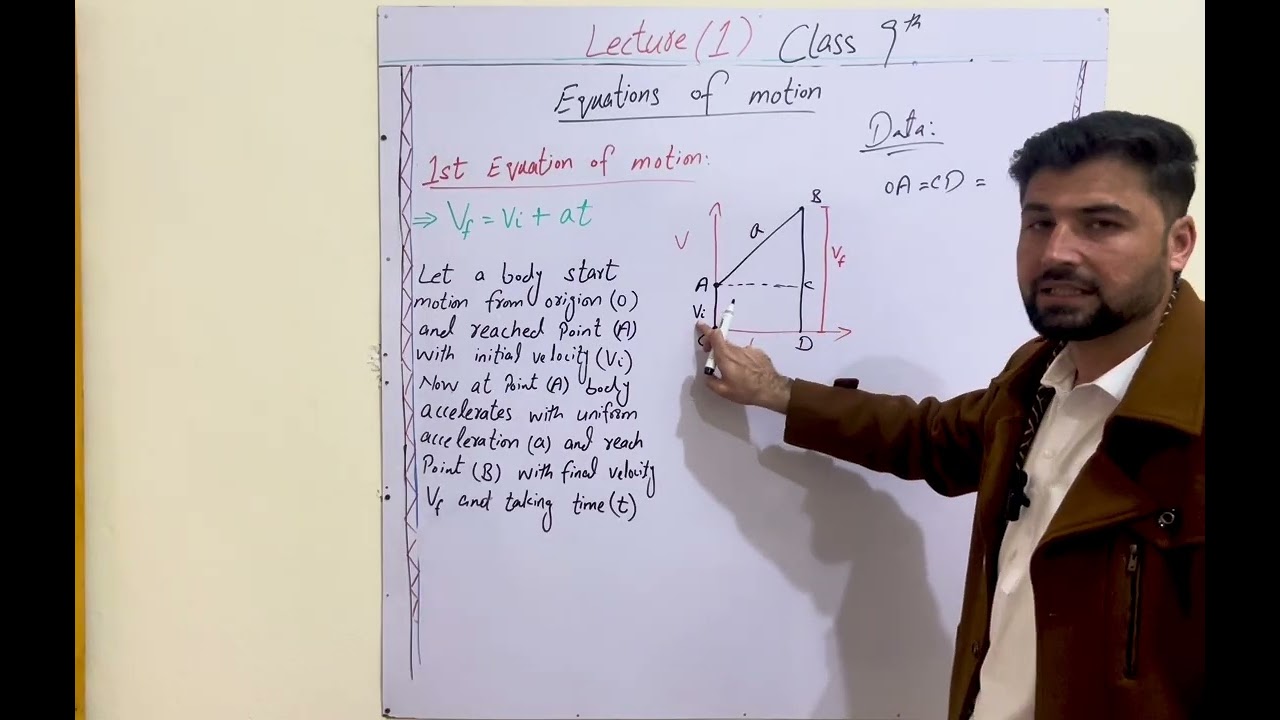 Lecture (1) Class 9th
Equations of motion
Data:
OA = CD =
1st Equation of motion:
⇒ Vf = Vi + at
Let a body start
motion from origion (O)
and reached Point (A)
with initial velocity (Vi)
Now at Point (A) body
accelerates with uniform
acceleration (a) and reach
Point (B) with final velocity
Vf and taking time (t)
B
a
V
Vf
A
C
Vi
D